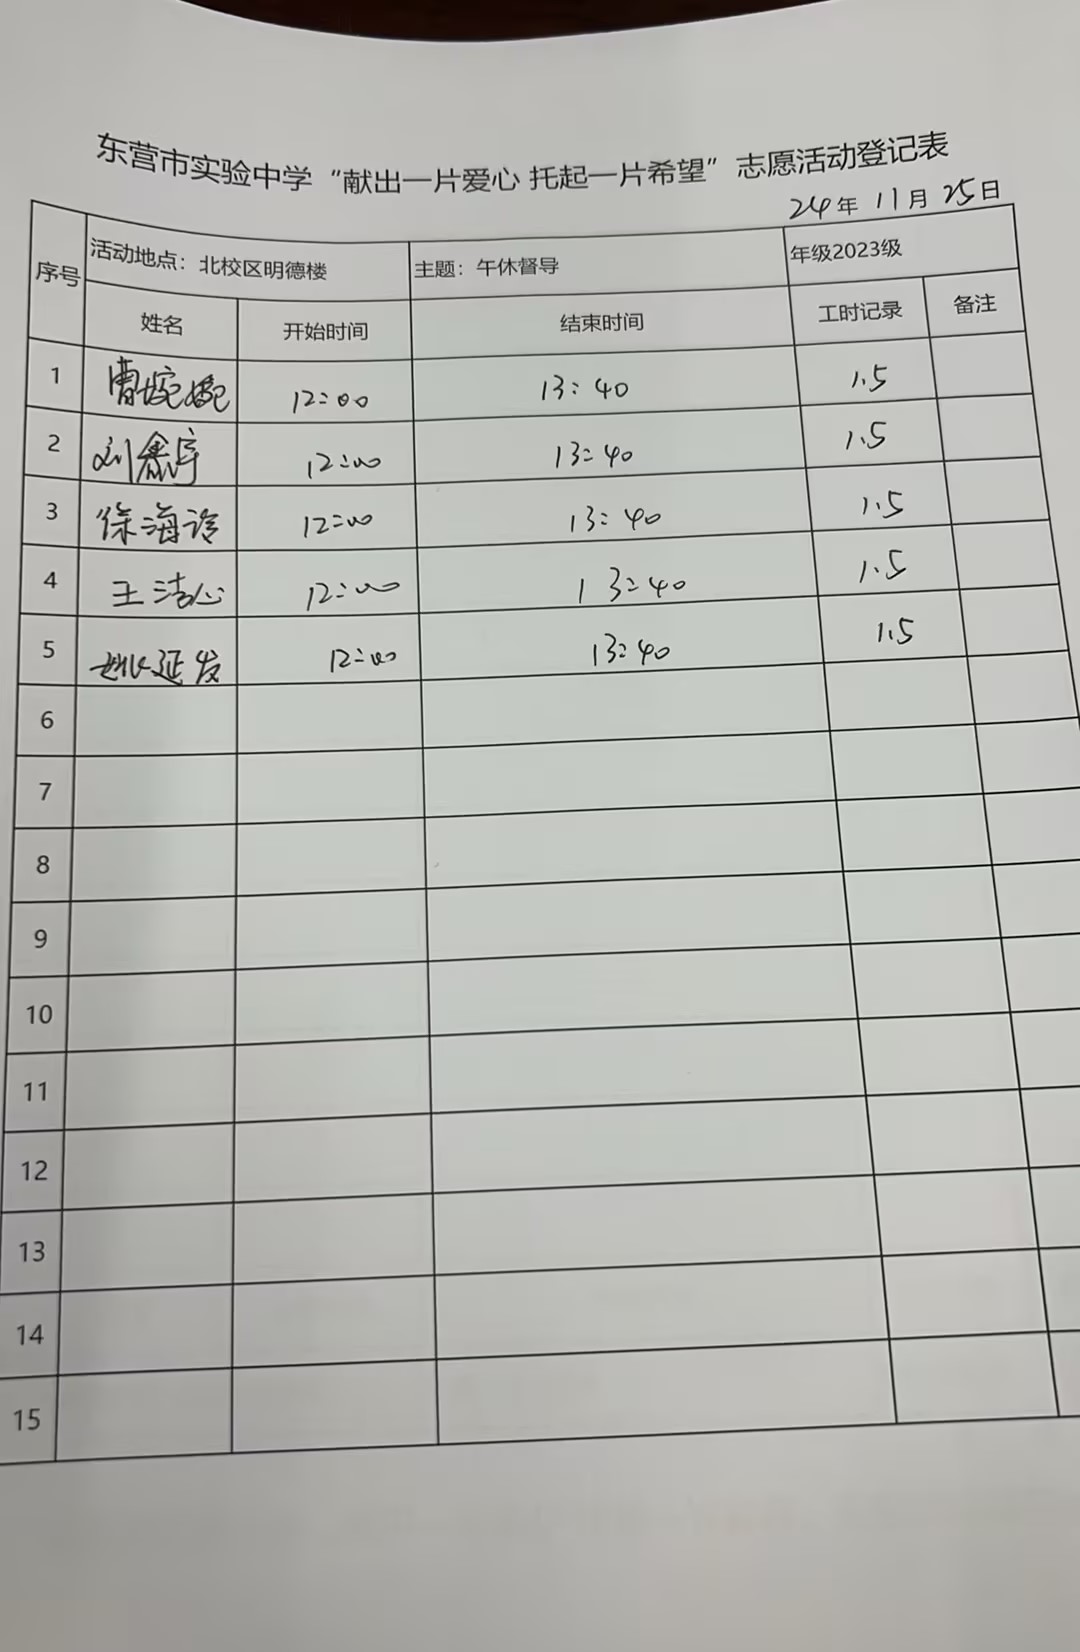 东营市实验中学“献出一片爱心 托起一片希望”志愿活动登记表
24年 11月 25日
序号 活动地点：北校区明德楼 主题：午休督导 年级2023级
姓名 开始时间 结束时间 工时记录 备注
1 曹婉婉 12:00 13:40 1.5
2 刘鑫宇 12:00 13:40 1.5
3 徐海 12:00 13:40 1.5
4 王洁心 12:00 13:40 1.5
5 延发 12:00 13:40 1.5
6
7
8
9
10
11
12
13
14
15